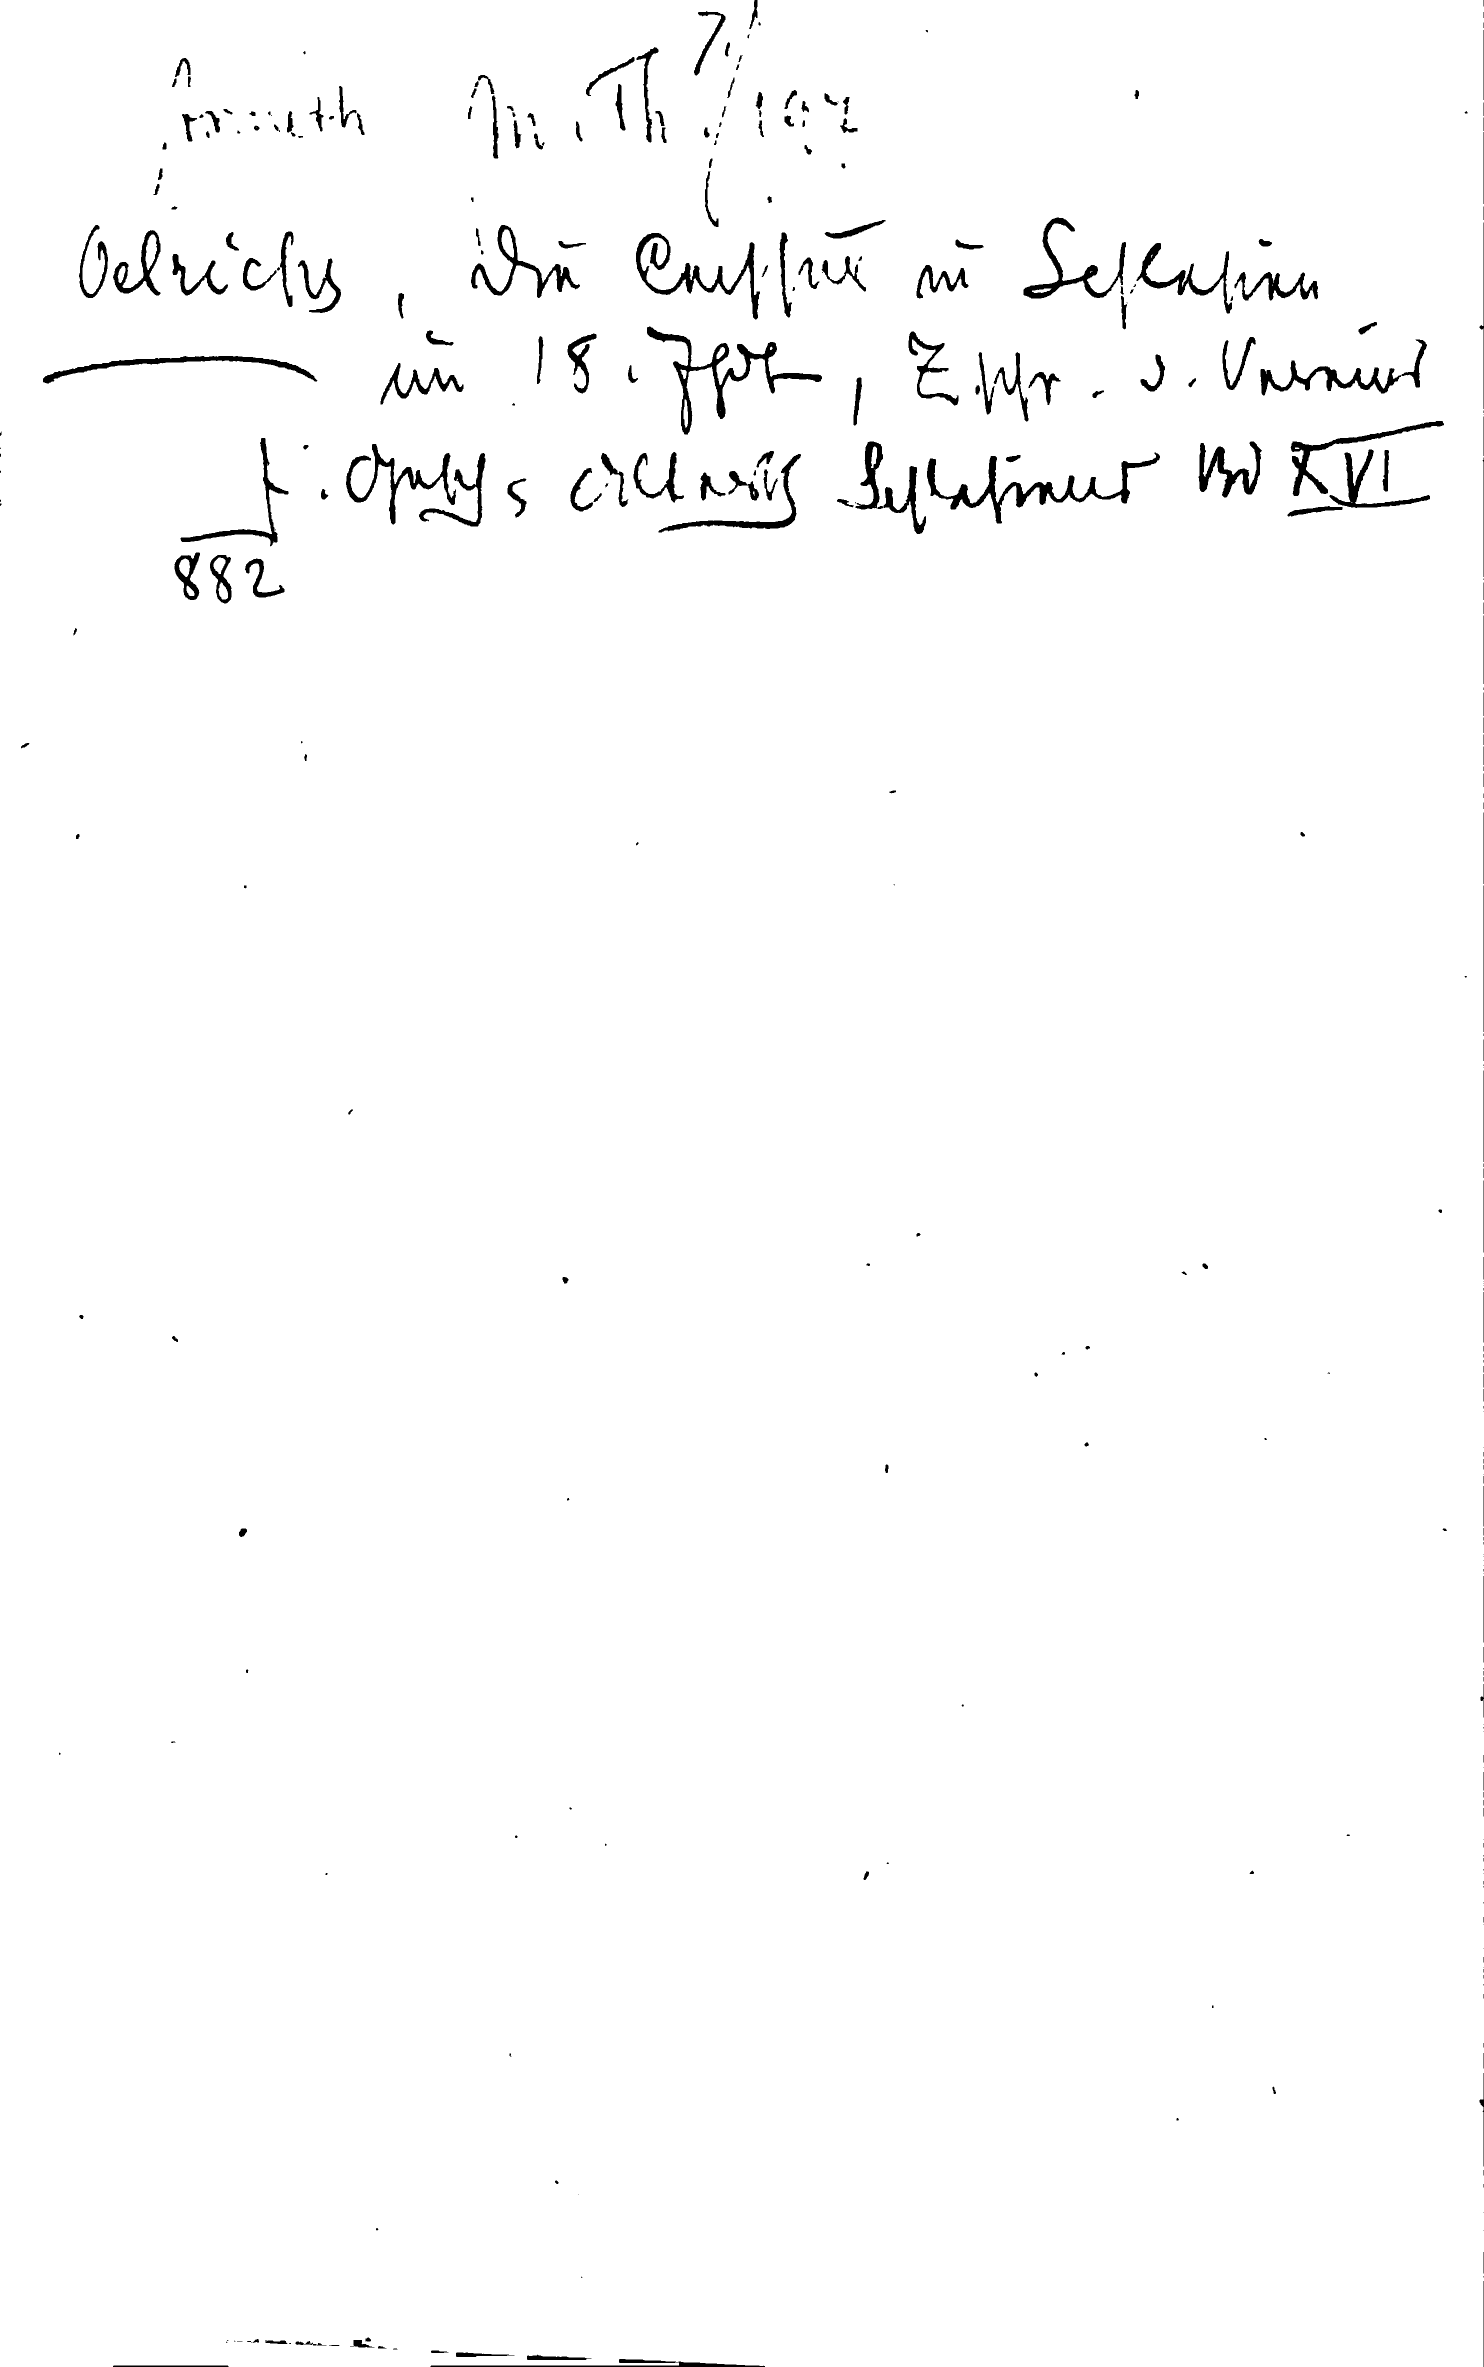 Arneth M. Th. 7./
Oelrichs, Die in Schlesien
im 18. Jhdt, Ztschr. d. Vereins
f. Gesch. Alterth. Schlesiens Bd XVI
882